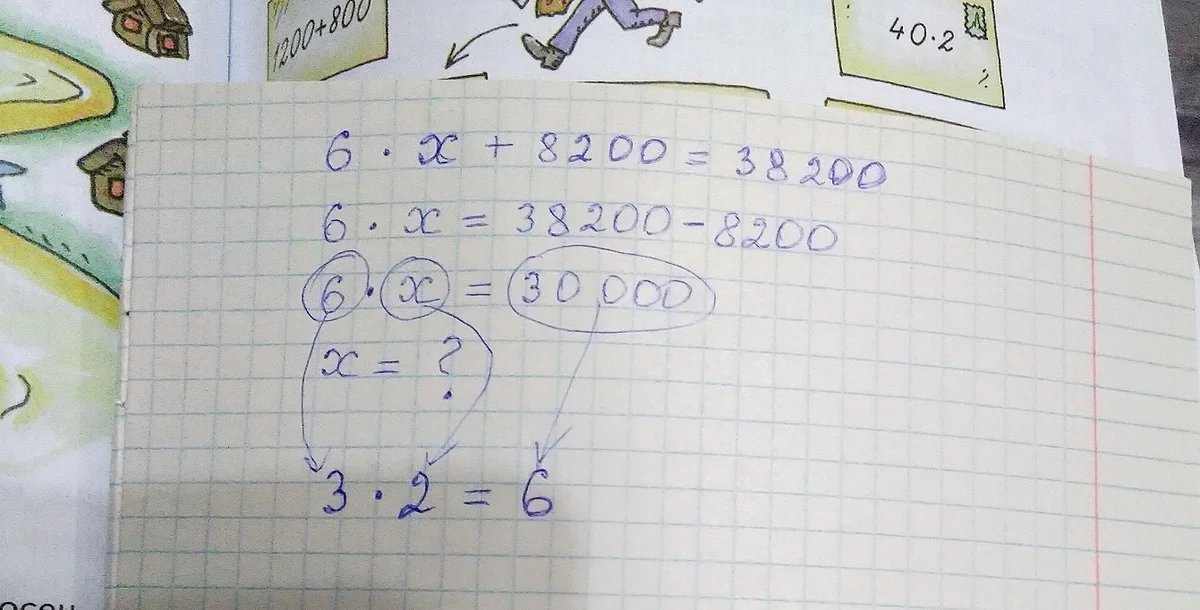 1200+800
40·2
6 · x + 8200 = 38200
6 · x = 38200 - 8200
6 · x = 30 000
x = ?
3 · 2 = 6